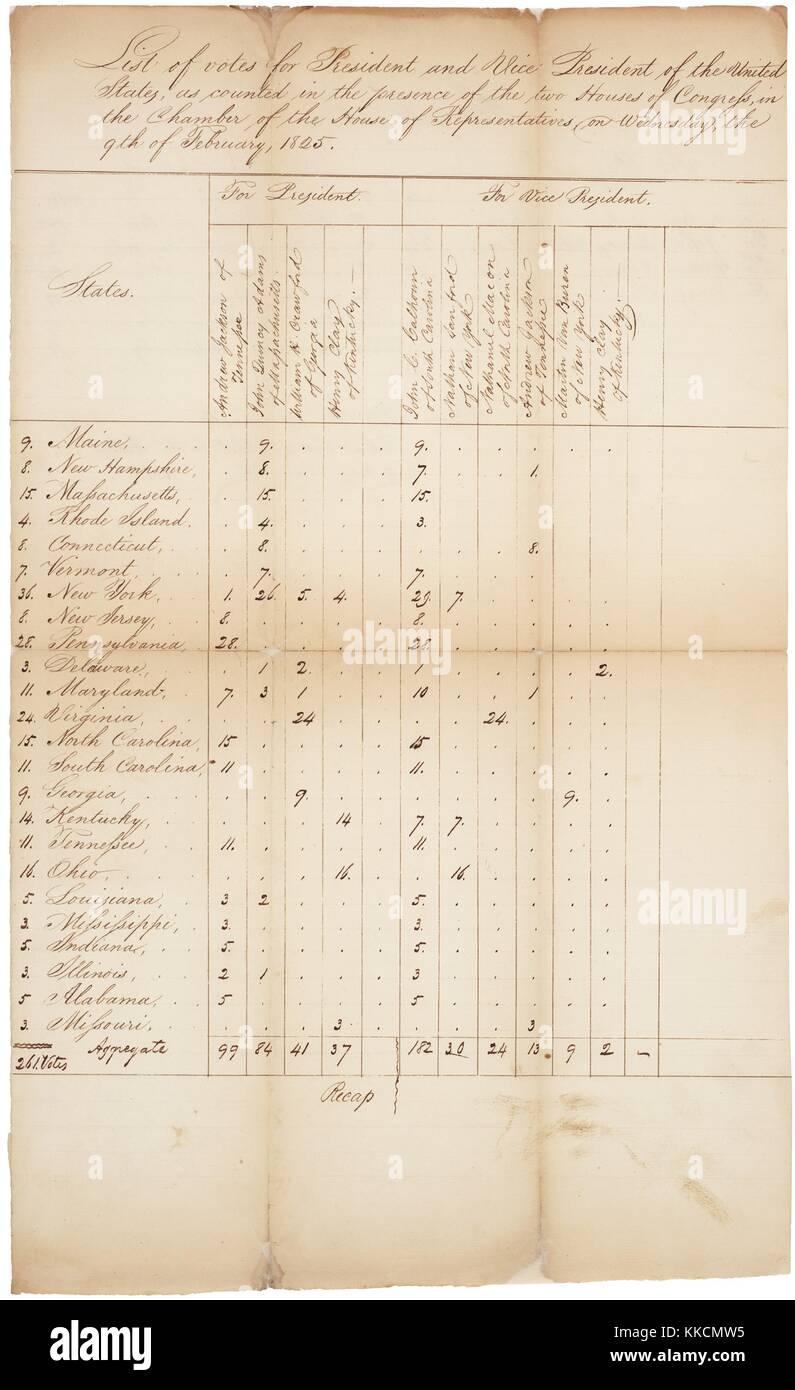 List of votes for President and Vice President of the United
States, as counted in the presence of the two Houses of Congress, in
the Chamber of the House of Representatives, on Wednesday, the
9th of February, 1825.
For President. For Vice President.
States.
Andrew Jackson of
Tennessee
John Quincy Adams
of Massachusetts.
William H. Crawford
of Georgia
Henry Clay
of Kentucky.
John C. Calhoun
of South Carolina
Nathan Sanford
of New York
Nathaniel Macon
of North Carolina
Andrew Jackson
of Tennessee
Martin Van Buren
of New York
Henry Clay
of Kentucky.
9. Maine, . 9. . . . 9. . . . . .
8. New Hampshire, . 8. . . . 7. . . 1.
15. Massachusetts, . 15. 15.
4. Rhode Island. . 4. 3.
8. Connecticut, . 8. . . . 8.
7. Vermont, . 7. 7.
36. New York, 1. 26. 5. 4. 29. 7.
8. New Jersey, 8. 8.
28. Pennsylvania, 28. 28.
3. Delaware, . 1 2. . . 1 . . . . 2.
11. Maryland, 7. 3 1 . . 10 . . 1
24. Virginia, . . 24 . . . . 24. . . .
15. North Carolina, 15 . . . . 15 . . . . .
11. South Carolina, 11 . . . . 11. . . . . .
9. Georgia, . . 9. . . . . . . 9. .
14. Kentucky, . . . 14 . 7. 7. . . . .
11. Tennessee, 11. . . . . 11. . . . . .
16. Ohio, . . . 16. . . 16. . . . .
5. Louisiana, 3 2 . . . 5. . . . . .
3. Mississippi, 3. . . . . 3. . . . . .
5. Indiana, 5. . . . . 5. . . . . .
3. Illinois, 2 1 . . . 3 . . . . .
5 Alabama, 5 . . . . 5 . . . . .
3. Missouri. . . . 3 . . . . 3 . .
Aggregate 99 84 41 37 182 30 24 13 9 2 –
261. Votes
Recap
alamy
alamy
alamy
alamy
a
a
a
a
a
a
a
a
a
alamy
Image ID: KKCMW5
www.alamy.com